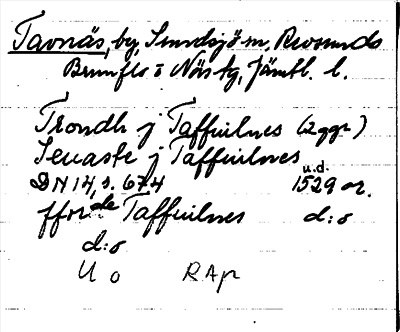 Tavnäs, by, Sundsjö sn, Revsunds
Brunflo o Näs tg, Jämtl. l.
Trondh j Taffuilnes (2 ggr)
Senaste j Taffuilnes
u.d.
DN 14, s. 674 1529 or.
ffor de Taffuilnes d:o
d:o
U o RAp